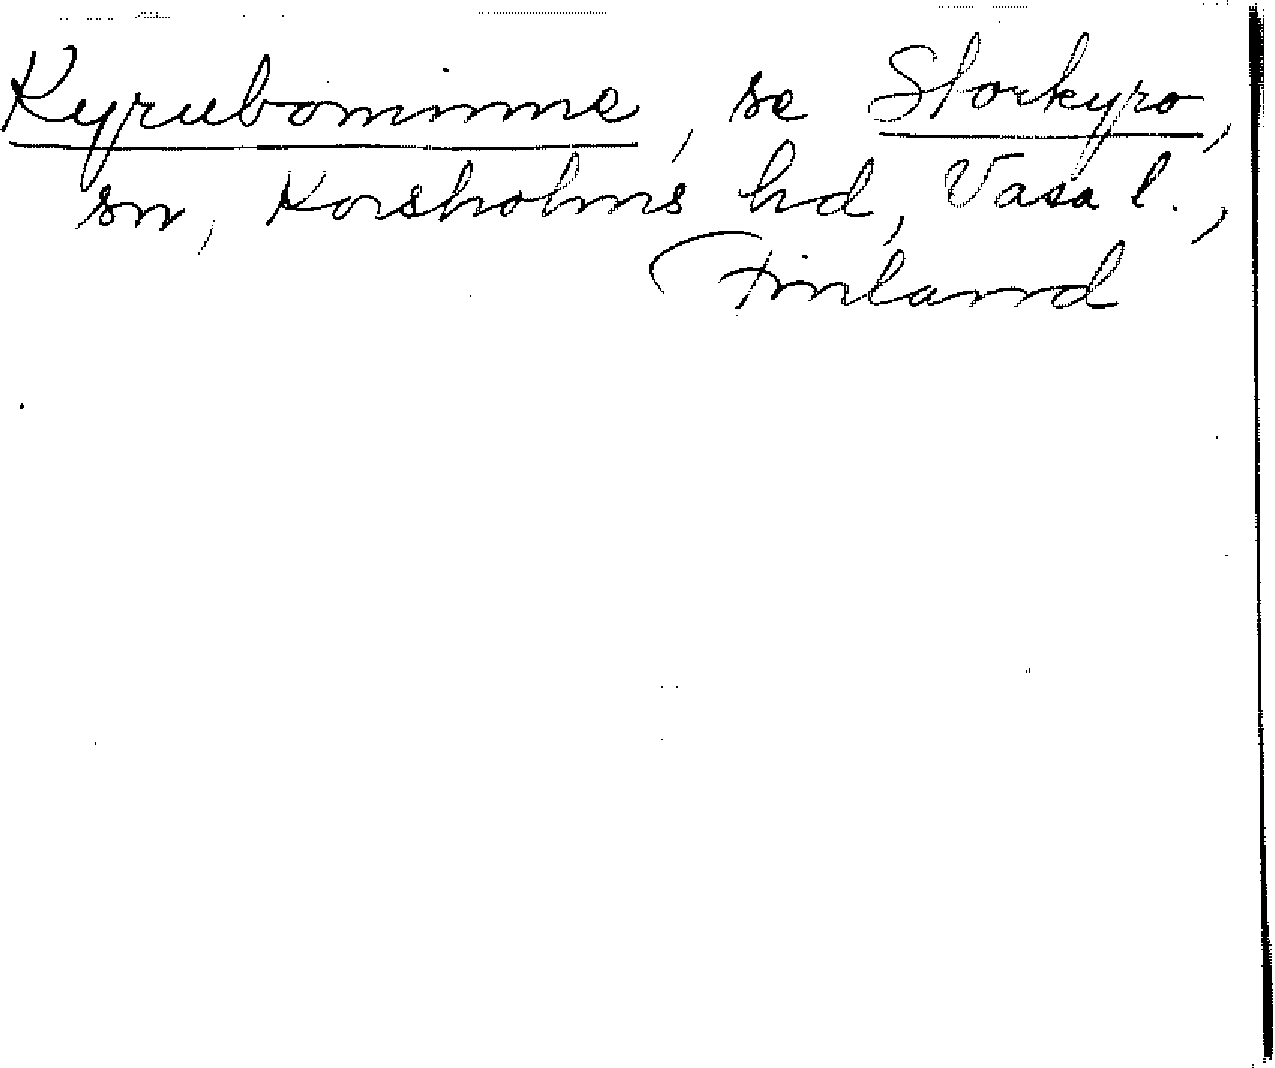 Kyrubominne, se Storkyro,
sn, Korsholms hd, Vasa l.,
Finland